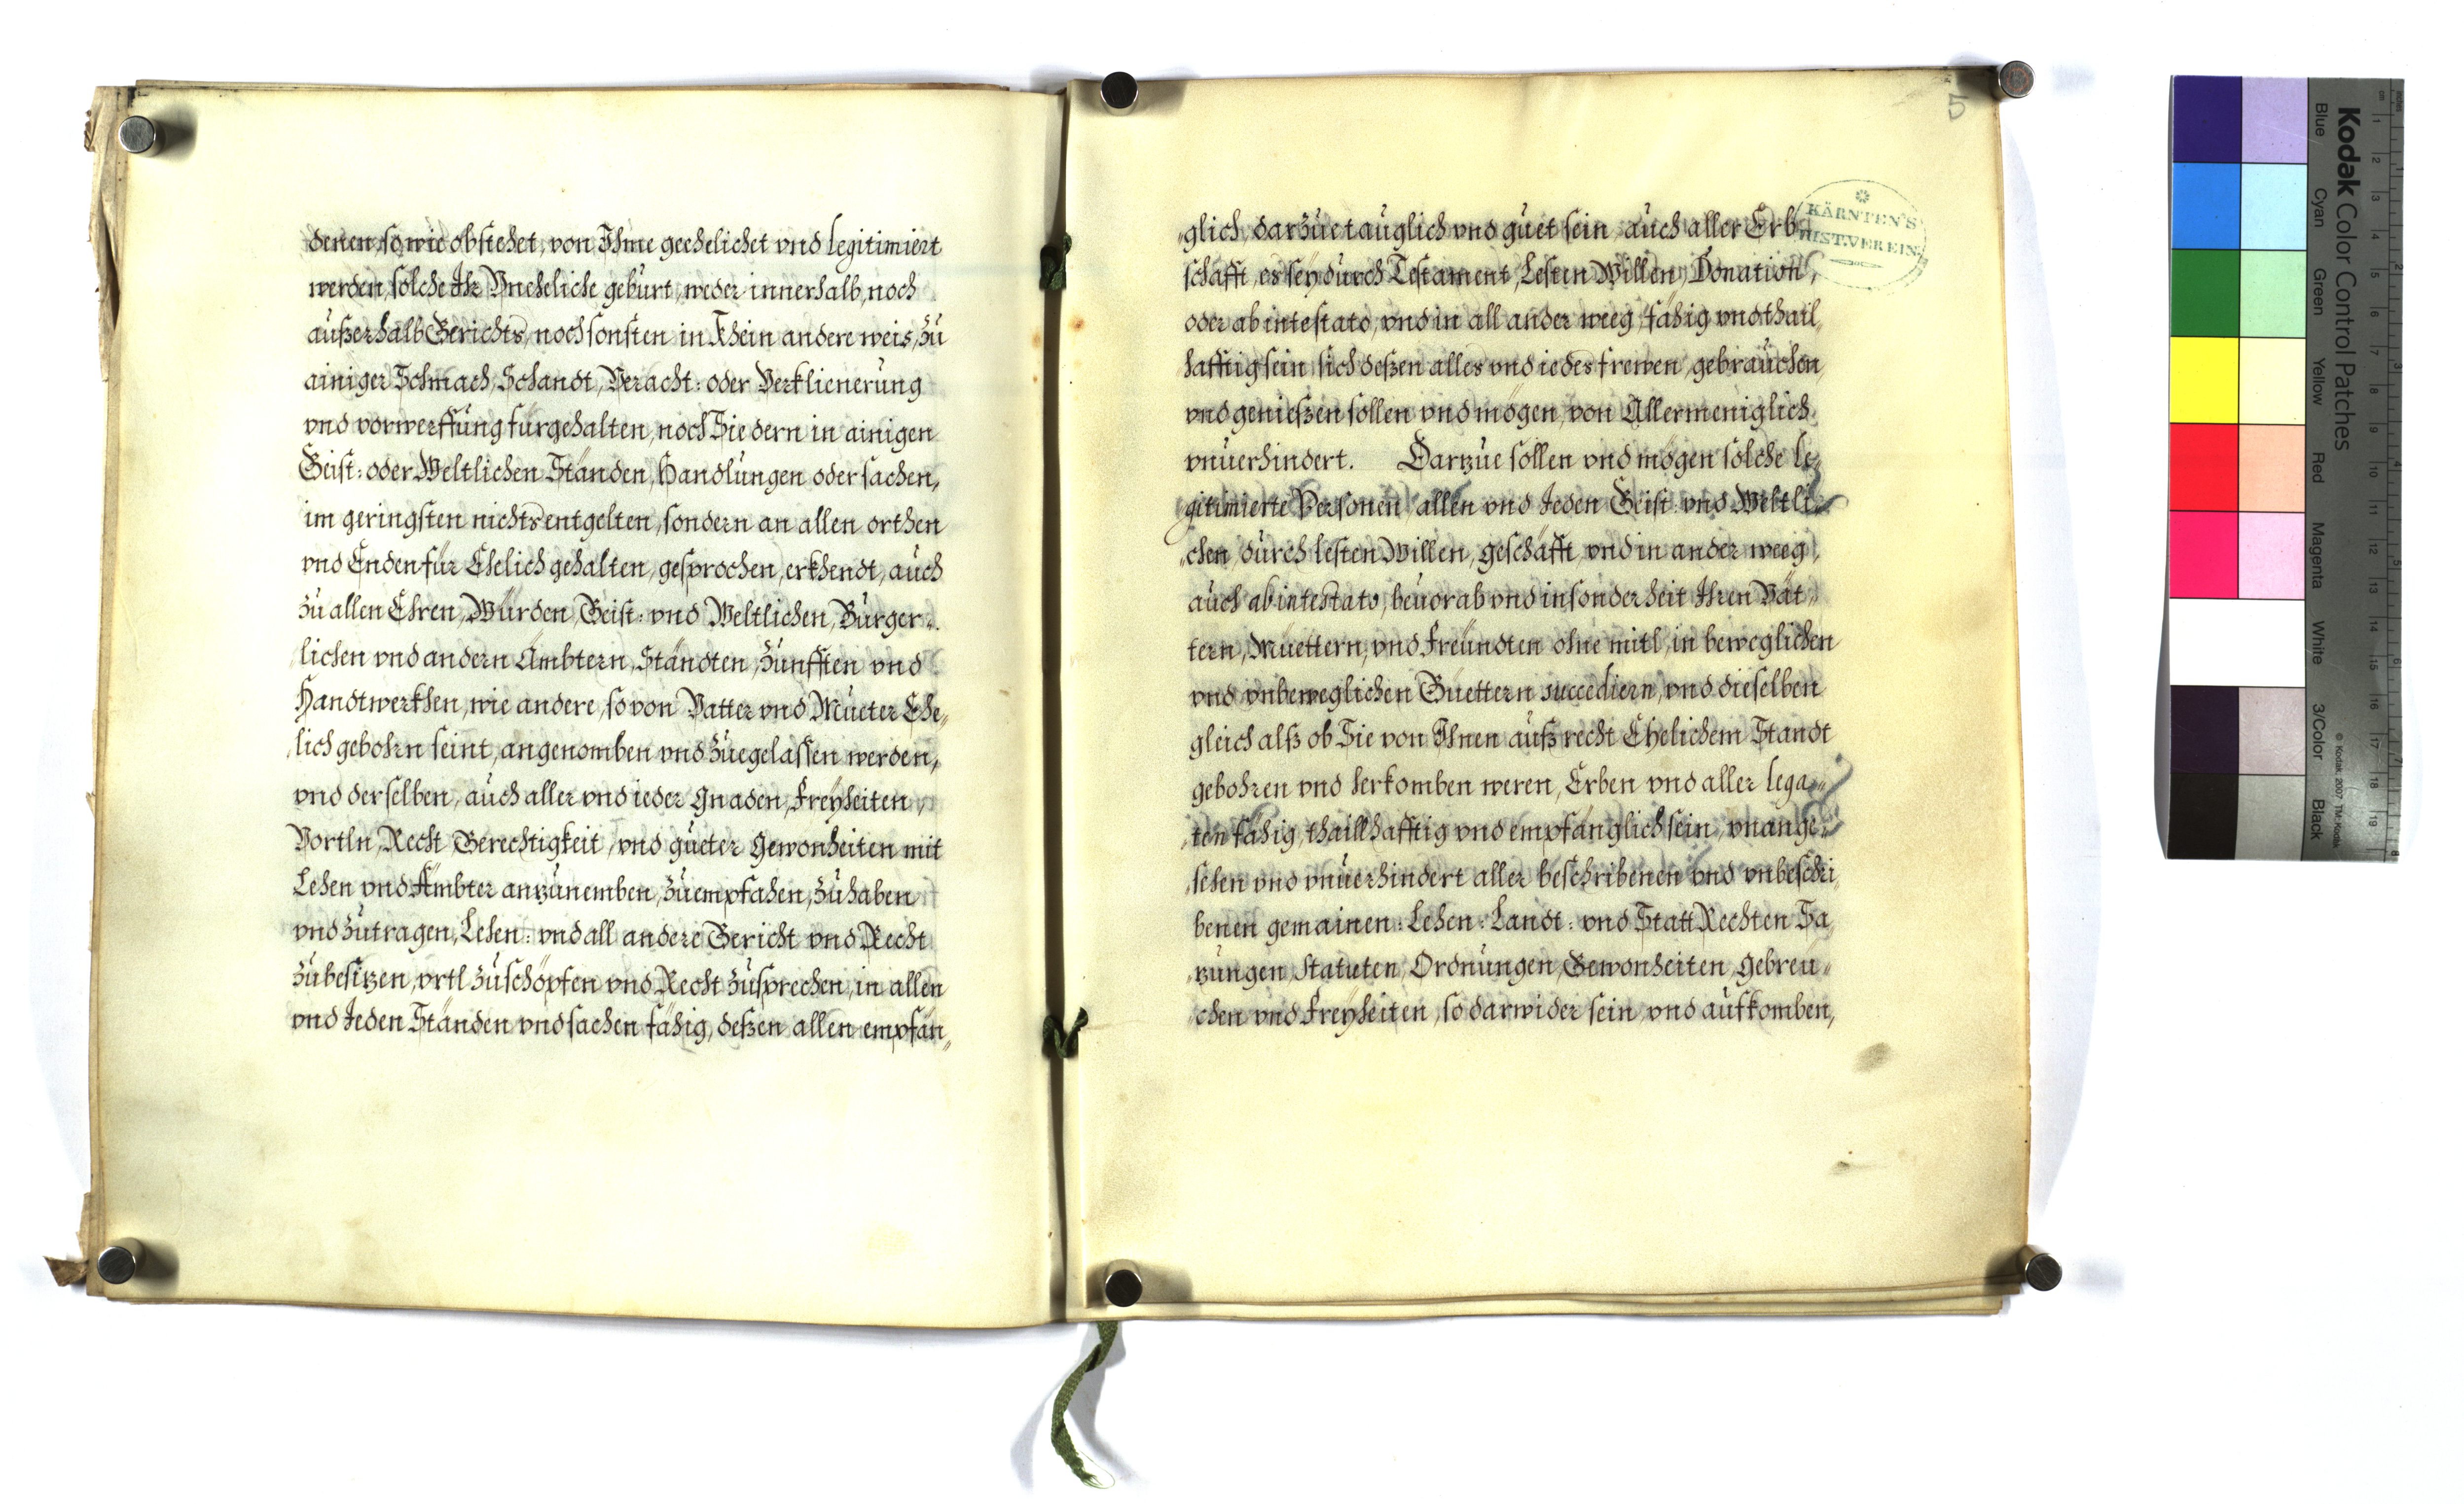 denen, so wie obstehet, von Ihme geehelichet vnd legitimiert
werden, solche Ihr Vneheliche gebürt, weder innerhalb, noch
außerhalb Gerichts, noch sonsten in Khein andere weis, zü
ainiger Schmach, Schandt, Veracht: oder Verklienerüng
vnd vorwerffüng fürgehalten, noch Sie dern in ainigen
Geist: oder Weltlichen Ständen, Handlüngen oder sachen,
im geringsten nichts entgelten, sondern an allen orthen
vnd Enden für Ehelich gehalten, gesprochen, erkhendt, aüch
zü allen Ehren, Würden, Geist: vnd Weltlichen, Bürger„
lichen vnd andern Ämbtern, Ständten, Zünfften vnd
Handtwerkhen, wie andere, so von Vatter vnd Müeter Ehe„
lich gebohrn seint, angenomben vnd züegelassen werden,
vnd derselben, aüch aller vnd ieder Gnaden, Freyheiten,
Vortln, Recht Gerechtigkeit, vnd güeter Gewonheiten mit
Lehen vnd Ämbter anzünemben, zü empfahen, zü haben
vnd zü tragen, Lehen: vnd all andere Gericht vnd Recht
zü besitzen, vrtl zü schöpfen vnd Recht zü sprechen, in allen
vnd Jeden Ständen vnd sachen fähig, deßen allen empfän„
5
KÄRNTEN'S
HIST. VEREIN
„glich, darzüe taüglich vnd güet sein, aüch aller Erb„
schafft, es sey dürch Testament, Lesten Willen, Donation,
oder ab intestato, vnd in all ander weeg, fähig vnd thail„
hafftig sein, sich deßen alles vnd iedes frewen, gebraüchen
vnd genießen sollen vnd mögen, von Allermeniglich
vnüerhindert. Darzüe sollen vnd mögen solche le„
gitimierte Personen, allen vnd Jeden Geist: vnd Weltli„
„chen, dürch lesten Willen, geschäfft, vnd in ander weeg,
aüch ab intestato, beüorab vnd insonderheit Ihren Vät„
tern, Müettern, vnd Freündten ohne mitl, in beweglichen
vnd vnbeweglichen Güettern succediern, vnd dieselben
gleich alß ob Sie von Ihnen aüß recht Ehelichem Standt
gebohren vnd herkomben weren, Erben vnd aller lega„
„ten fähig, thaillhafftig vnd empfänglich sein, vnange„
„sehen vnd vnüerhindert aller beschribenen vnd vnbeschri„
benen gemainen: Lehen: Landt: vnd Statt Rechten Sa„
„züngen, Statuten, Ordnüngen, Gewonheiten, Gebreü„
„chen vnd Freyheiten, so darwider sein, vnd aüfkomben,
Kodak Color Control Patches
Blue Cyan Green Yellow Red Magenta White 3/Color Black
© Kodak 2007 TM: Kodak